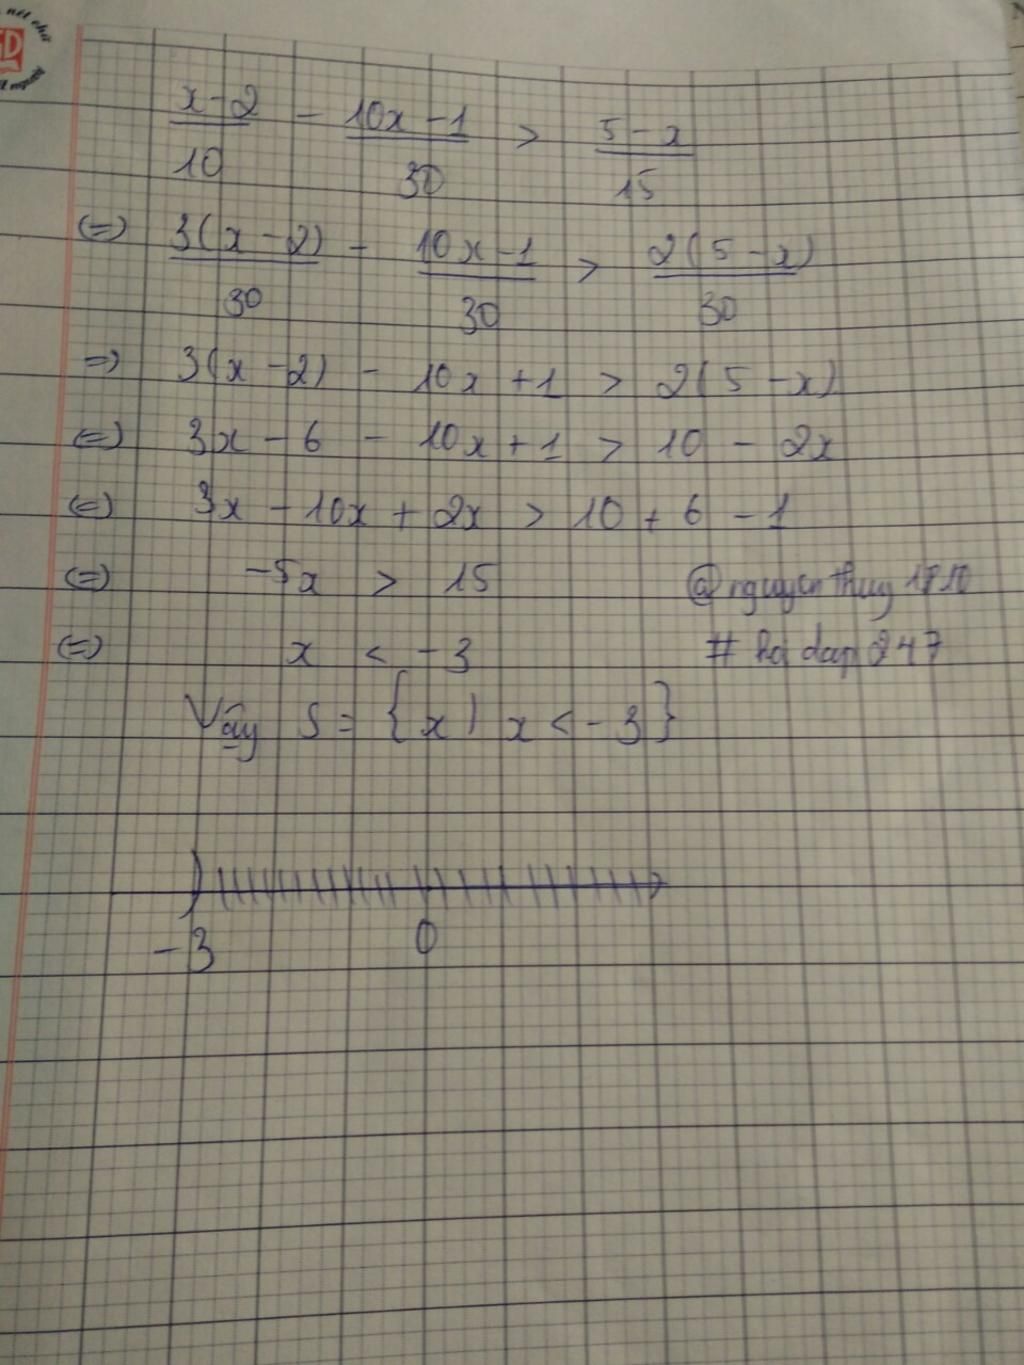 x-2 - 10x-1 > 5-x
10 30 15
(=) 3(x-2) - 10x-1 > 2(5-x)
30 30 30
=) 3(x-2) - 10x+1 > 2(5-x)
(=) 3x-6-10x+1 > 10-2x
(=) 3x-10x+2x > 10+6-1
(=) -5x > 15
@nguyenthuy1710
(=) x < -3
# hoidap247
Vậy S = {x | x < -3}
-3 0